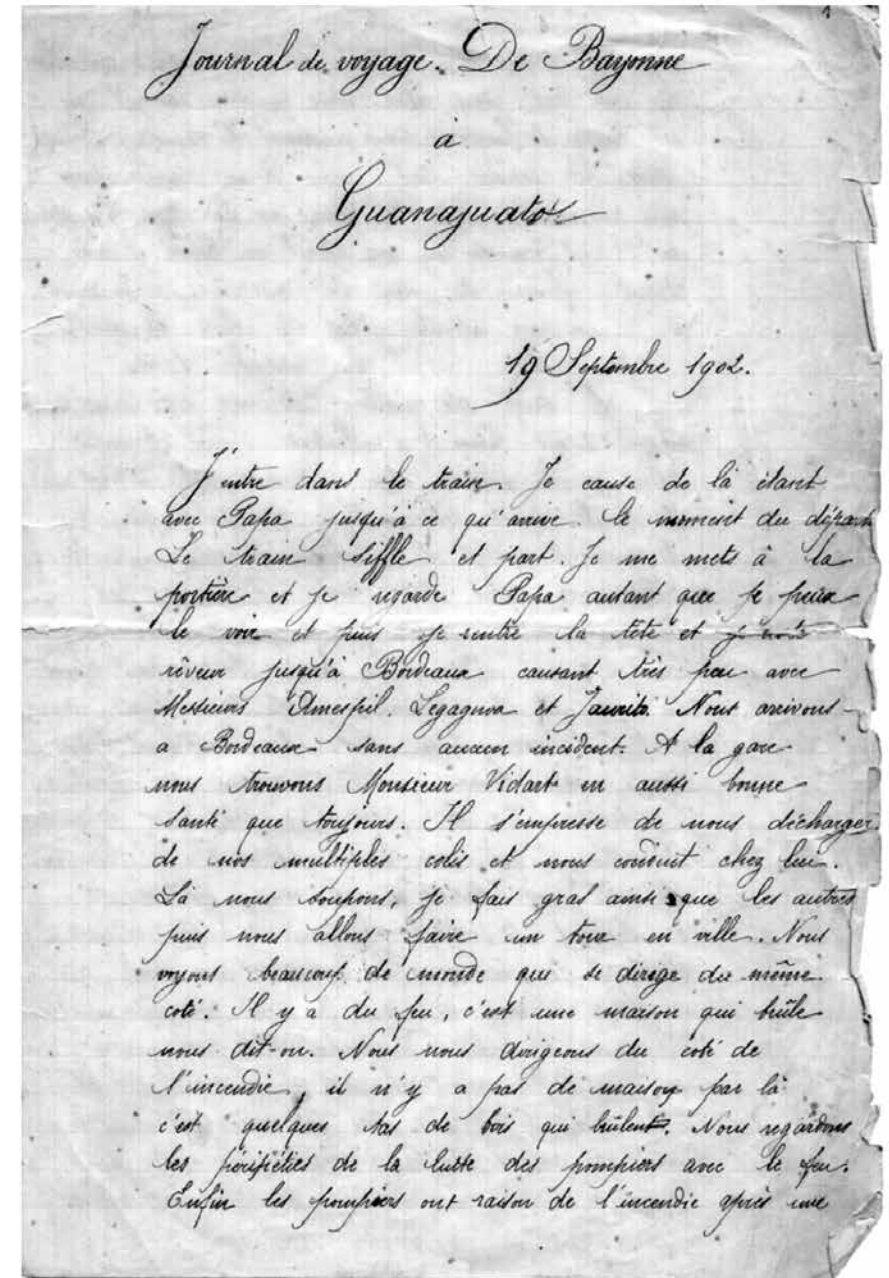 1
Journal de voyage. De Bayonne
à
Guanajuato
19 Septembre 1902.
J'entre dans le train. Je cause de là étant
avec Papa jusqu'à ce qu'arrive le moment du départ
Le train siffle et part. Je me mets à la
portière et je regarde Papa autant que je peux
le voir et puis je rentre la tête et je suis
rêveur jusqu'à Bordeaux causant très peu avec
Messieurs Amespil. Legagnoa et Jaurito. Nous arrivons
a Bordeaux sans aucun incident. A la gare
nous trouvons Monsieur Vidart en aussi bonne
santé que toujours. Il s'empresse de nous décharger
de nos multiples colis et nous conduit chez lui.
Là nous soupons, je fais gras ainsi que les autres
puis nous allons faire un tour en ville. Nous
voyons beaucoup de monde qui se dirige du même
coté. Il y a du feu, c'est une maison qui brûle
nous dit-on. Nous nous dirigeons du coté de
l'incendie, il n'y a pas de maison par là
c'est quelques tas de bois qui brûlent. Nous regardons
les péripéties de la lutte des pompiers avec le feu.
Enfin les pompiers ont raison de l'incendie après une